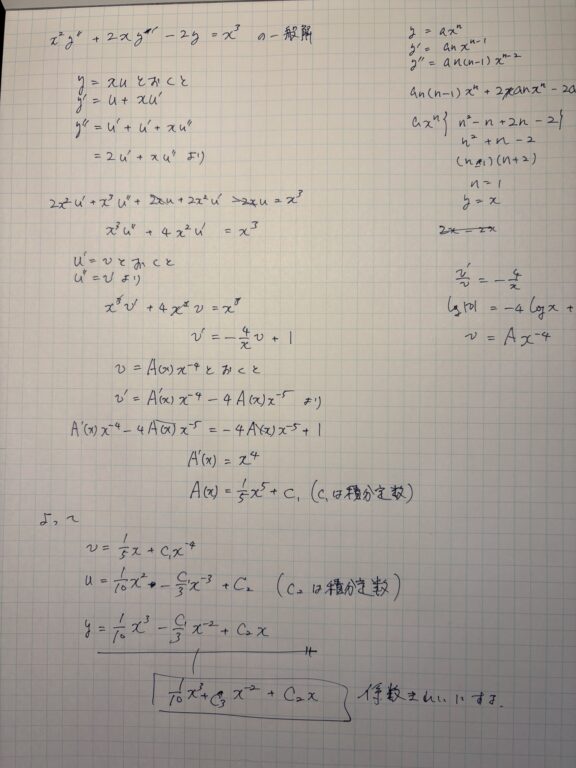 x²y'' + 2xy' - 2y = x³ の一般解
y = xu とおくと
y' = u + xu'
y'' = u' + u' + xu''
= 2u' + xu'' より
2x²u' + x³u'' + 2xu + 2x²u' - 2xu = x³
x³u'' + 4x²u' = x³
u' = v とおくと
u'' = v' より
x³v' + 4x²v = x³
v' = -4/x v + 1
v = A(x)x⁻⁴ とおくと
v' = A'(x)x⁻⁴ - 4A(x)x⁻⁵ より
A'(x)x⁻⁴ - 4A(x)x⁻⁵ = -4A(x)x⁻⁵ + 1
A'(x) = x⁴
A(x) = 1/5 x⁵ + C₁ (C₁は積分定数)
よって
v = 1/5 x + C₁x⁻⁴
u = 1/10 x² - C₁/3 x⁻³ + C₂ (C₂は積分定数)
y = 1/10 x³ - C₁/3 x⁻² + C₂x
1/10 x³ + C₃ x⁻² + C₂x 係数きれいにする。
y = axⁿ
y' = anxⁿ⁻¹
y'' = an(n-1)xⁿ⁻²
an(n-1)xⁿ + 2xanxⁿ - 2a
axⁿ{n² - n + 2n - 2}
n² + n - 2
(n-1)(n+2)
n = 1
y = x
2x = 2x
v'/v = -4/x
log|v| = -4logx +
v = Ax⁻⁴